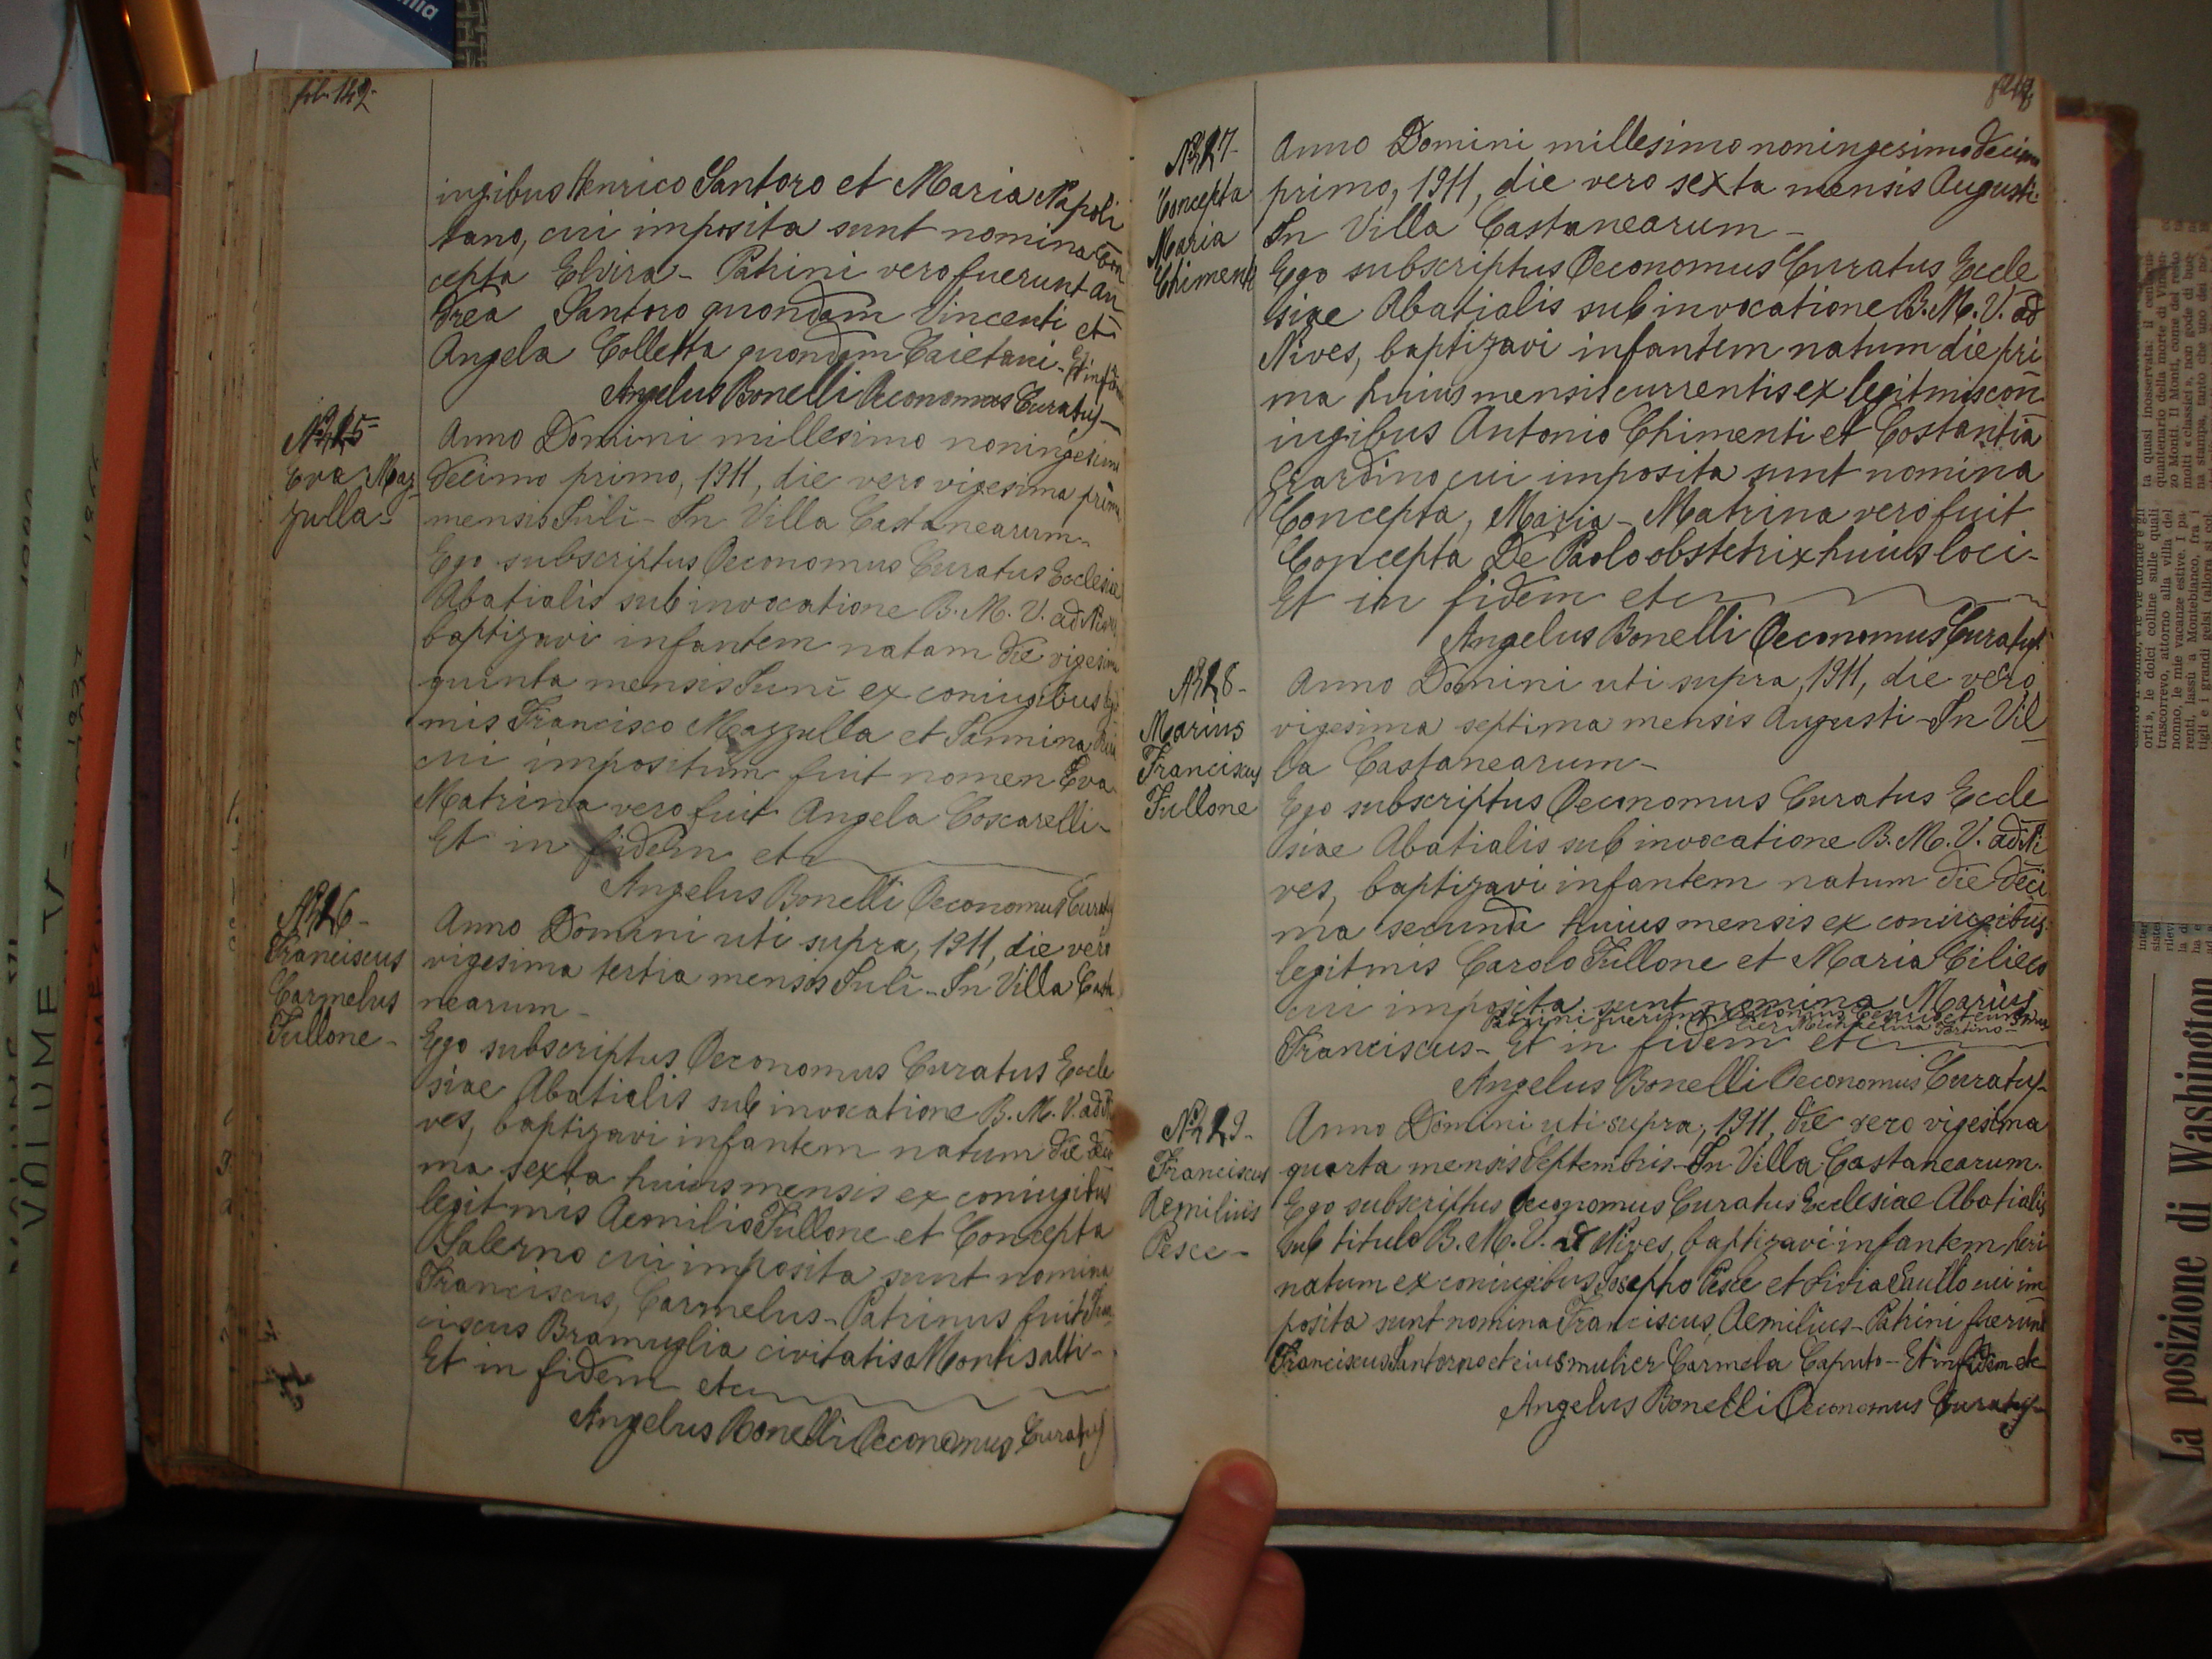 fol. 149-
ingibus Henrico Santoro et Maria Napoli
tano, cui imposita sunt nomina Con
cepta Elvira - Patrini vero fuerunt An
drea Santoro quondam Vincenti et
Angela Colletta quondam Caietani - Et in
Angelus Bonelli Oeconomus Curatus -
Eva Maz
zulla -
Anno Domini millesimo noningesimo
decimo primo, 1911, die vero vigesima prima
mensis Juli - In Villa Castanearum -
Ego subscriptus Oeconomus Curatus Ecclesiae
Abatialis sub invocatione B. M. V. ad Nives
baptizavi infantem natam die vigesima
quinta mensis Juni ex coniugibus
mis Francisco Mazzulla et Sannina
cui impositum fuit nomen Eva
Matrina vero fuit Angela Coscarelli -
Et in fidem etc
Angelus Bonelli Oeconomus Curatus
Franciscus
Carmelus
Fullone -
Anno Domini uti supra, 1911, die vero
vigesima tertia mensis Juli - In Villa Casta
nearum -
Ego subscriptus Oeconomus Curatus Eccle
siae Abatialis sub invocatione B. M. V. ad Ni
ves, baptizavi infantem natum die deci
ma sexta huius mensis ex coniugibus
legitmis Aemilio Fullone et Concepta
Salerno cui imposita sunt nomina
Franciscus, Carmelus - Patrinus fuit Fran
ciscus Bramuglia civitatis Montisalti -
Et in fidem etc
Angelus Bonelli Oeconomus Curatus
Concepta
Maria
Chimenti
Anno Domini millesimo noningesimo decimo
primo, 1911, die vero sexta mensis Augusti -
In Villa Castanearum -
Ego subscriptus Oeconomus Curatus Eccle
siae Abatialis sub invocatione B. M. V. ad
Nives, baptizavi infantem natum die pri
ma huius mensis currentis ex legitmis con
iugibus Antonio Chimenti et Costantia
cui imposita sunt nomina
Concepta, Maria - Matrina vero fuit
Concepta De Paolo obstetrix huius loci -
Et in fidem etc
Angelus Bonelli Oeconomus Curatus
Marius
Franciscus
Fullone
Anno Domini uti supra, 1911, die vero
vigesima septima mensis Augusti - In Vil
la Castanearum -
Ego subscriptus Oeconomus Curatus Eccle
siae Abatialis sub invocatione B. M. V. ad Ni
ves, baptizavi infantem natum die deci
ma secunda huius mensis ex coniugibus
legitmis Carolo Fullone et Maria Cilieco
cui imposita sunt nomina Marius
Patrini fuerunt et eius mu
lier Michaelina
Franciscus - Et in fidem etc
Angelus Bonelli Oeconomus Curatus -
Franciscus
Aemilius
Pesce -
Anno Domini uti supra, 1911, die vero vigesima
quarta mensis Septembris - In Villa Castanearum.
Ego subscriptus Oeconomus Curatus Ecclesiae Abatialis
sub titulo B. M. V. ad Nives, baptizavi infantem heri
natum ex coniugibus Josepho Pesce et Livia cui im
posita sunt nomina Franciscus, Aemilius - Patrini fuerunt
Franciscus Santoro et eius mulier Carmela Caputo - Et in fidem etc
Angelus Bonelli Oeconomus Curatus -
VOLUME IV
La posizione di Washington